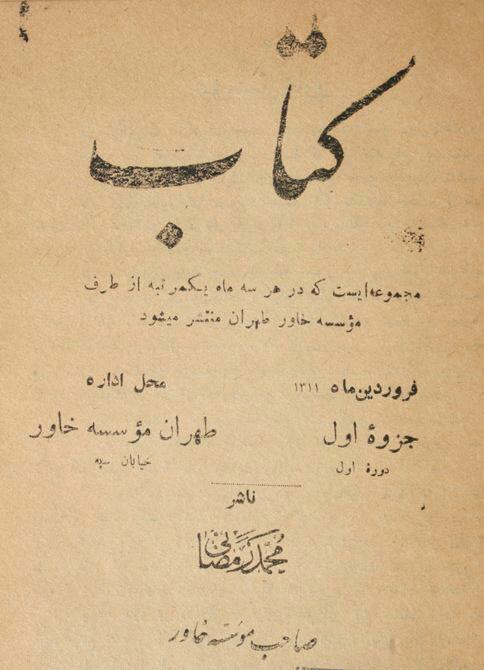 کتاب
مجموعه‌ایست که در هر سه ماه یکمرتبه از طرف
مؤسسه خاور طهران منتشر میشود
فروردین‌ماه ۱۳۱۱
محل اداره
جزوهٔ اول
طهران مؤسسه خاور
دورهٔ اول
خیابان سپه
ناشر
محمد رمضانی
صاحب مؤسسه خاور